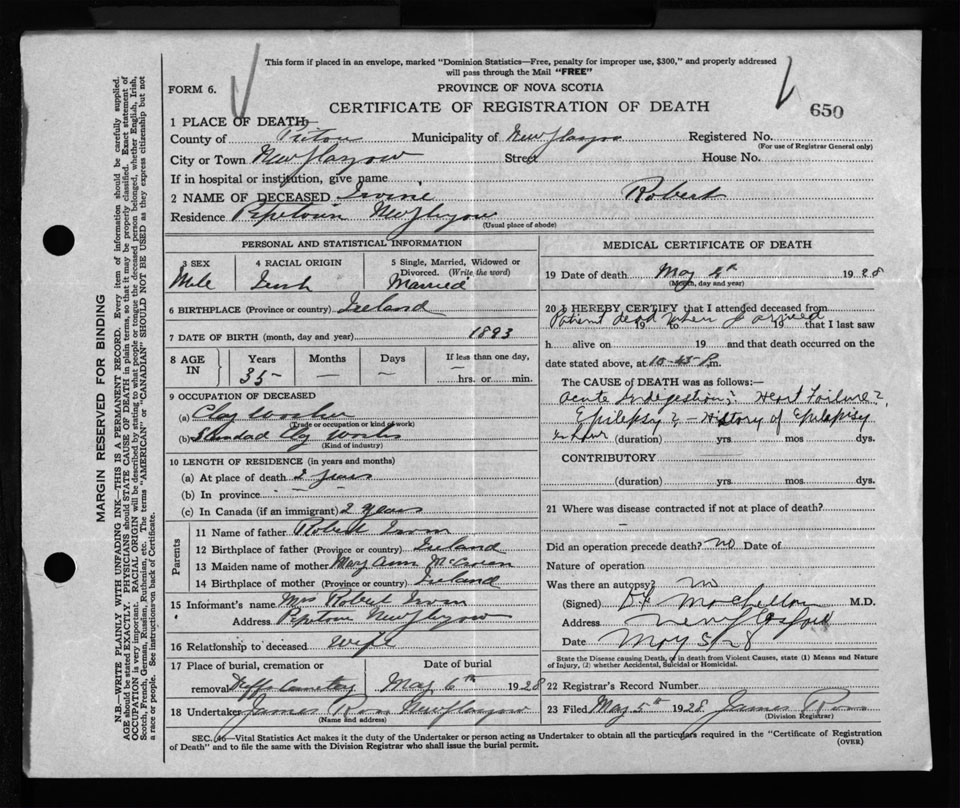 This form if placed in an envelope, marked "Dominion Statistics—Free, penalty for improper use, $300," and properly addressed
will pass through the Mail "FREE"
FORM 6.
PROVINCE OF NOVA SCOTIA
CERTIFICATE OF REGISTRATION OF DEATH
650
1 PLACE OF DEATH
County of Pictou Municipality of New Glasgow Registered No.
(For use of Registrar General only)
City or Town New Glasgow Street House No.
If in hospital or institution, give name
2 NAME OF DECEASED Irvine Robert
Residence Pipetown New Glasgow
(Usual place of abode)
PERSONAL AND STATISTICAL INFORMATION
3 SEX Male
4 RACIAL ORIGIN Irish
5 Single, Married, Widowed or Divorced. (Write the word) Married
6 BIRTHPLACE (Province or country) Ireland
7 DATE OF BIRTH (month, day and year) 1893
8 AGE IN Years 35 Months — Days — If less than one day, — hrs. or min.
9 OCCUPATION OF DECEASED
(a) Clay Worker
(Trade or occupation or kind of work)
(b) Standard Clay Works
(Kind of industry)
10 LENGTH OF RESIDENCE (in years and months)
(a) At place of death 2 years
(b) In province — —
(c) In Canada (if an immigrant) 2 years
Parents
11 Name of father Robert Irvin
12 Birthplace of father (Province or country) Ireland
13 Maiden name of mother Mary Ann
14 Birthplace of mother (Province or country) Ireland
15 Informant's name Mrs Robert Irvin
Address Pipetown New Glasgow
16 Relationship to deceased Wife
17 Place of burial, cremation or Date of burial
removal Cemetery May 6th 1928
18 Undertaker James Ross New Glasgow
(Name and address)
MEDICAL CERTIFICATE OF DEATH
19 Date of death May 4th 1928
(Month, day and year)
20 I HEREBY CERTIFY that I attended deceased from
Patient dead when I arrived
19 to 19 that I last saw
h alive on 19 and that death occurred on the
date stated above, at 10-45 P.m.
The CAUSE of DEATH was as follows:—
Acute Indigestion? Heart Failure?
Epilepsy? — History of Epilepsy
½ hour (duration) yrs. mos. dys.
CONTRIBUTORY
(duration) yrs. mos. dys.
21 Where was disease contracted if not at place of death?
—
Did an operation precede death? no Date of
Nature of operation
Was there an autopsy? no
(Signed) M.D.
Address New Glasgow
Date May 5/28
State the Disease causing Death, or in death from Violent Causes, state (1) Means and Nature
of Injury, (2) whether Accidental, Suicidal or Homicidal.
22 Registrar's Record Number
23 Filed May 5th 1928 James Ross
(Division Registrar)
SEC. 46—Vital Statistics Act makes it the duty of the Undertaker or person acting as Undertaker to obtain all the particulars required in the "Certificate of Registration
of Death" and to file the same with the Division Registrar who shall issue the burial permit.
(OVER)
MARGIN RESERVED FOR BINDING
N.B.—WRITE PLAINLY WITH UNFADING INK—THIS IS A PERMANENT RECORD. Every item of information should be carefully supplied.
AGE should be stated EXACTLY. PHYSICIANS should STATE CAUSE OF DEATH in plain terms, so that it may be properly classified. Exact statement of
OCCUPATION is very important. RACIAL ORIGIN will be described by stating to what people or tongue the deceased person belonged, whether English, Irish,
Scotch, French, German, Russian, Ruthenian, etc. The terms "AMERICAN" or "CANADIAN" SHOULD NOT BE USED as they express citizenship but not
a race or people. See instructions on back of Certificate.